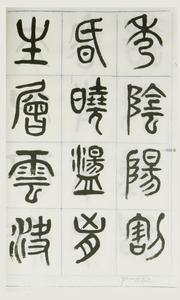 秀陰陽割
昏曉盪胸
生層雲決